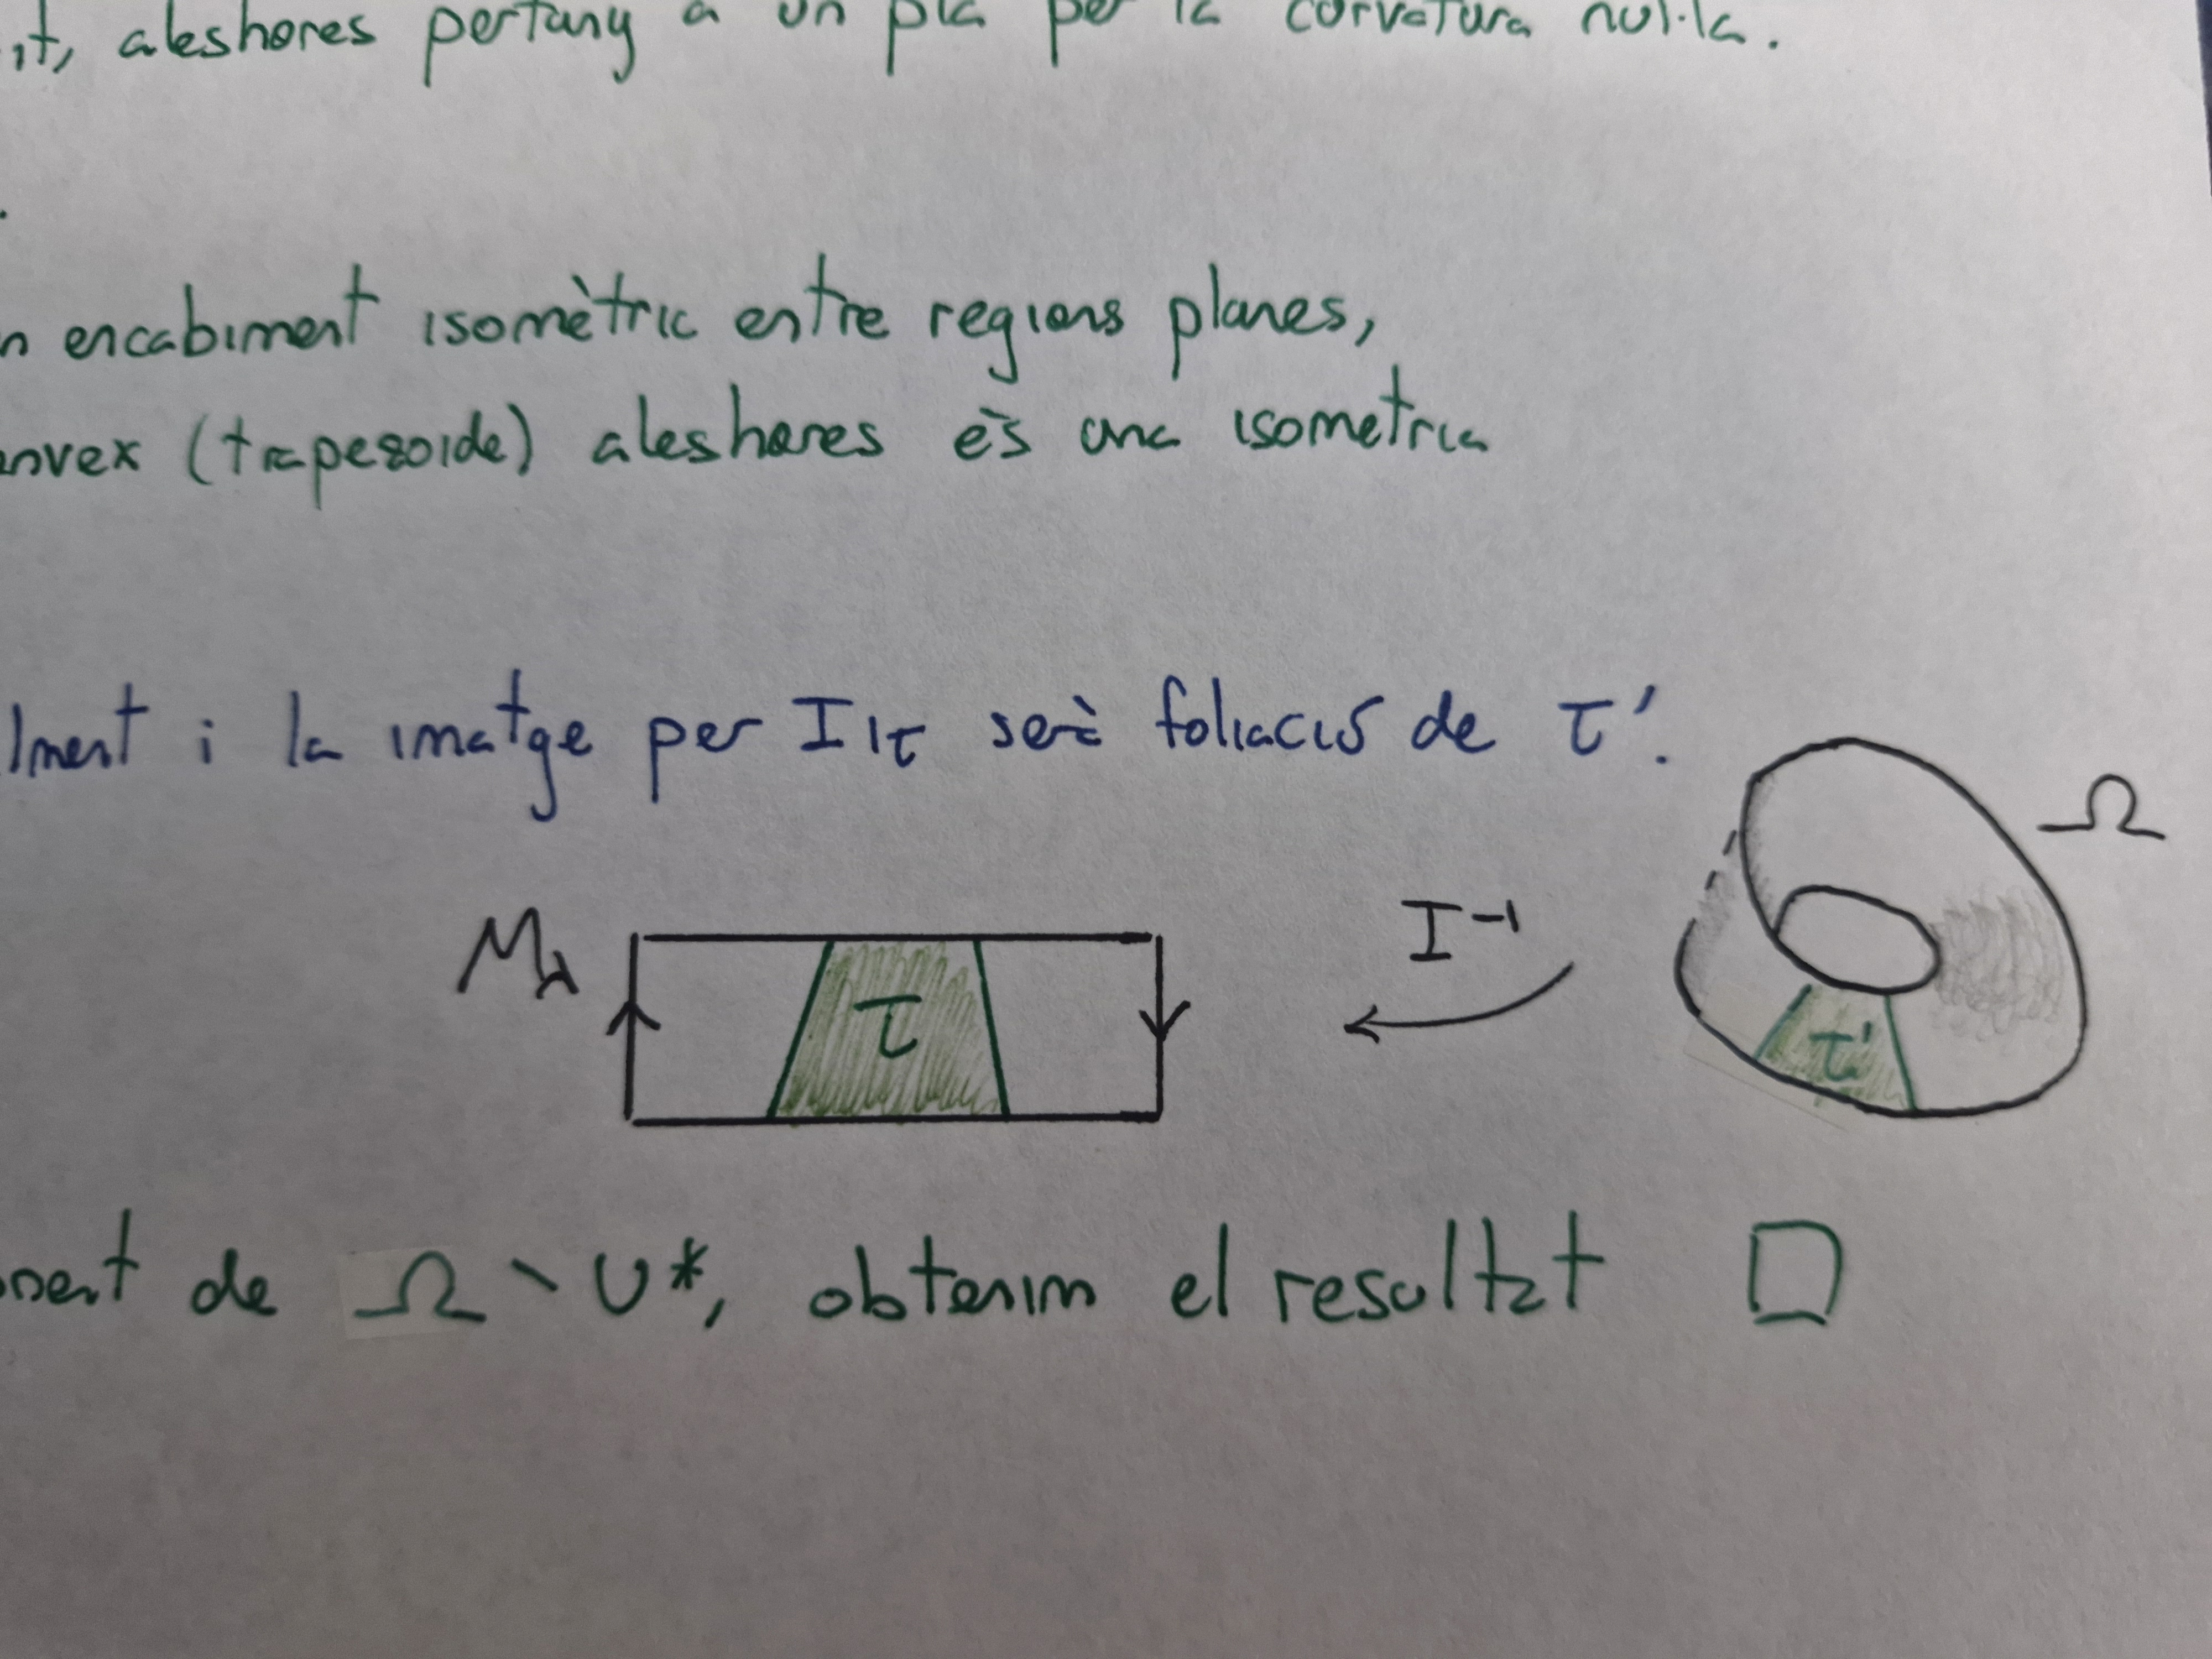 aleshores pertany a un pla per la curvatura nul·la.
encabiment isomètric entre regions planes,
(trapezoide) aleshores és una isometria
i la imatge per I|τ serà foliació de τ'.
Ω
M_λ
I⁻¹
τ
τ'
de Ω \ U*, obtenim el resultat □